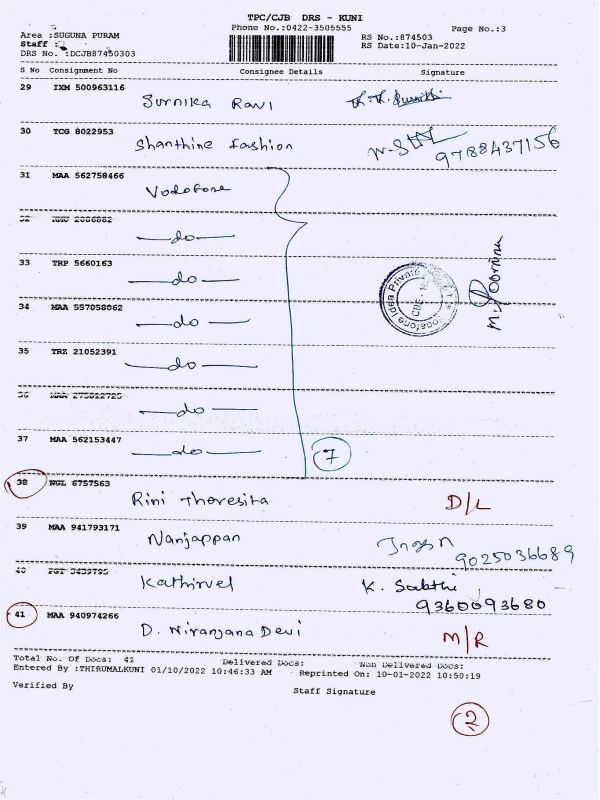 TPC/CJB DRS - KUNI
Phone No.:0422-3505555
Page No.:3
Area :SUGUNA PURAM
RS No.:874503
Staff :
RS Date:10-Jan-2022
DRS No. :DCJB87450303
S No Consignment No Consignee Details Signature
29 IXM 500963116
Surnika Ravi
30 TCG 8022953
Shanthine fashion
9788437156
31 MAA 562758466
Vodofone
32
do
33 TRP 5660163
do
34 MAA 557058062
do
35 TRZ 21052391
do
36 MAA
do
37 MAA 562153447
do
7
Vodafone Idea Private
M. Poornima
38 NGL 6757563
Rini Theresita D/L
39 MAA 941793171
Nanjappan
9025036689
40
Kathirvel K. Sakthi
9360093680
41 MAA 940974266
D. Niranjana Devi M/R
Total No. Of Docs: 41 Delivered Docs: Non Delivered Docs:
Entered By :THIRUMALKUNI 01/10/2022 10:46:33 AM Reprinted On: 10-01-2022 10:50:19
Verified By
Staff Signature
2